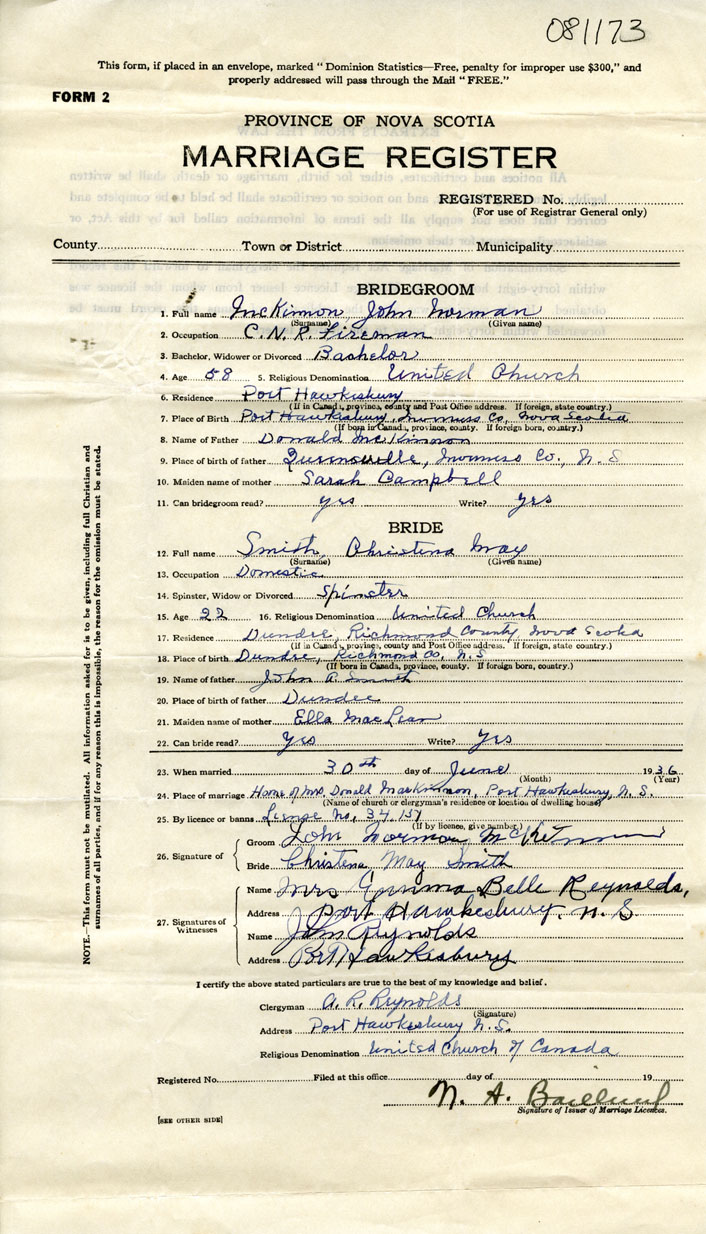 081173
This form, if placed in an envelope, marked "Dominion Statistics—Free, penalty for improper use $300," and
properly addressed will pass through the Mail "FREE."
FORM 2
PROVINCE OF NOVA SCOTIA
MARRIAGE REGISTER
REGISTERED No.
(For use of Registrar General only)
County Town or District Municipality
BRIDEGROOM
1. Full name McKinnon John Norman
(Surname) (Given name)
2. Occupation C.N.R. Fireman
3. Bachelor, Widower or Divorced Bachelor
4. Age 58 5. Religious Denomination United Church
6. Residence Port Hawkesbury
(If in Canada, province, county and Post Office address. If foreign, state country.)
7. Place of Birth Port Hawkesbury, Inverness Co, Nova Scotia
(If born in Canada, province, county. If foreign born, country.)
8. Name of Father Donald McKinnon
9. Place of birth of father Inverness Co., N. S
10. Maiden name of mother Sarah Campbell
11. Can bridegroom read? yes Write? yes
BRIDE
12. Full name Smith, Christena May
(Surname) (Given name)
13. Occupation Domestic
14. Spinster, Widow or Divorced Spinster
15. Age 22 16. Religious Denomination United Church
17. Residence Dundee, Richmond County, Nova Scotia
(If in Canada, province, county and Post Office address. If foreign, state country.)
18. Place of birth Dundee, Richmond Co, N. S
(If born in Canada, province, county. If foreign born, country.)
19. Name of father John A. Smith
20. Place of birth of father Dundee
21. Maiden name of mother Ella MacLean
22. Can bride read? Yes Write? Yes
23. When married 30th day of June 1936
(Month) (Year)
24. Place of marriage Home of Mrs. Donald MacKinnon, Port Hawkesbury, N. S.
(Name of church or clergyman's residence or location of dwelling house)
25. By licence or banns License No, 34,157
(If by licence, give number)
26. Signature of
Groom John Norman McKinnon
Bride Christena May Smith
27. Signatures of Witnesses
Name Mrs Emma Belle Reynolds,
Address Port Hawkesbury, N. S.
Name Reynolds
Address Port Hawkesbury
I certify the above stated particulars are true to the best of my knowledge and belief.
Clergyman A. R. Reynolds
(Signature)
Address Port Hawkesbury N. S.
Religious Denomination United Church of Canada
Registered No. Filed at this office day of 19
N. A.
Signature of Issuer of Marriage Licences.
[SEE OTHER SIDE]
NOTE.—This form must not be mutilated. All information asked for is to be given, including full Christian and
surnames of all parties, and if for any reason this is impossible, the reason for the omission must be stated.